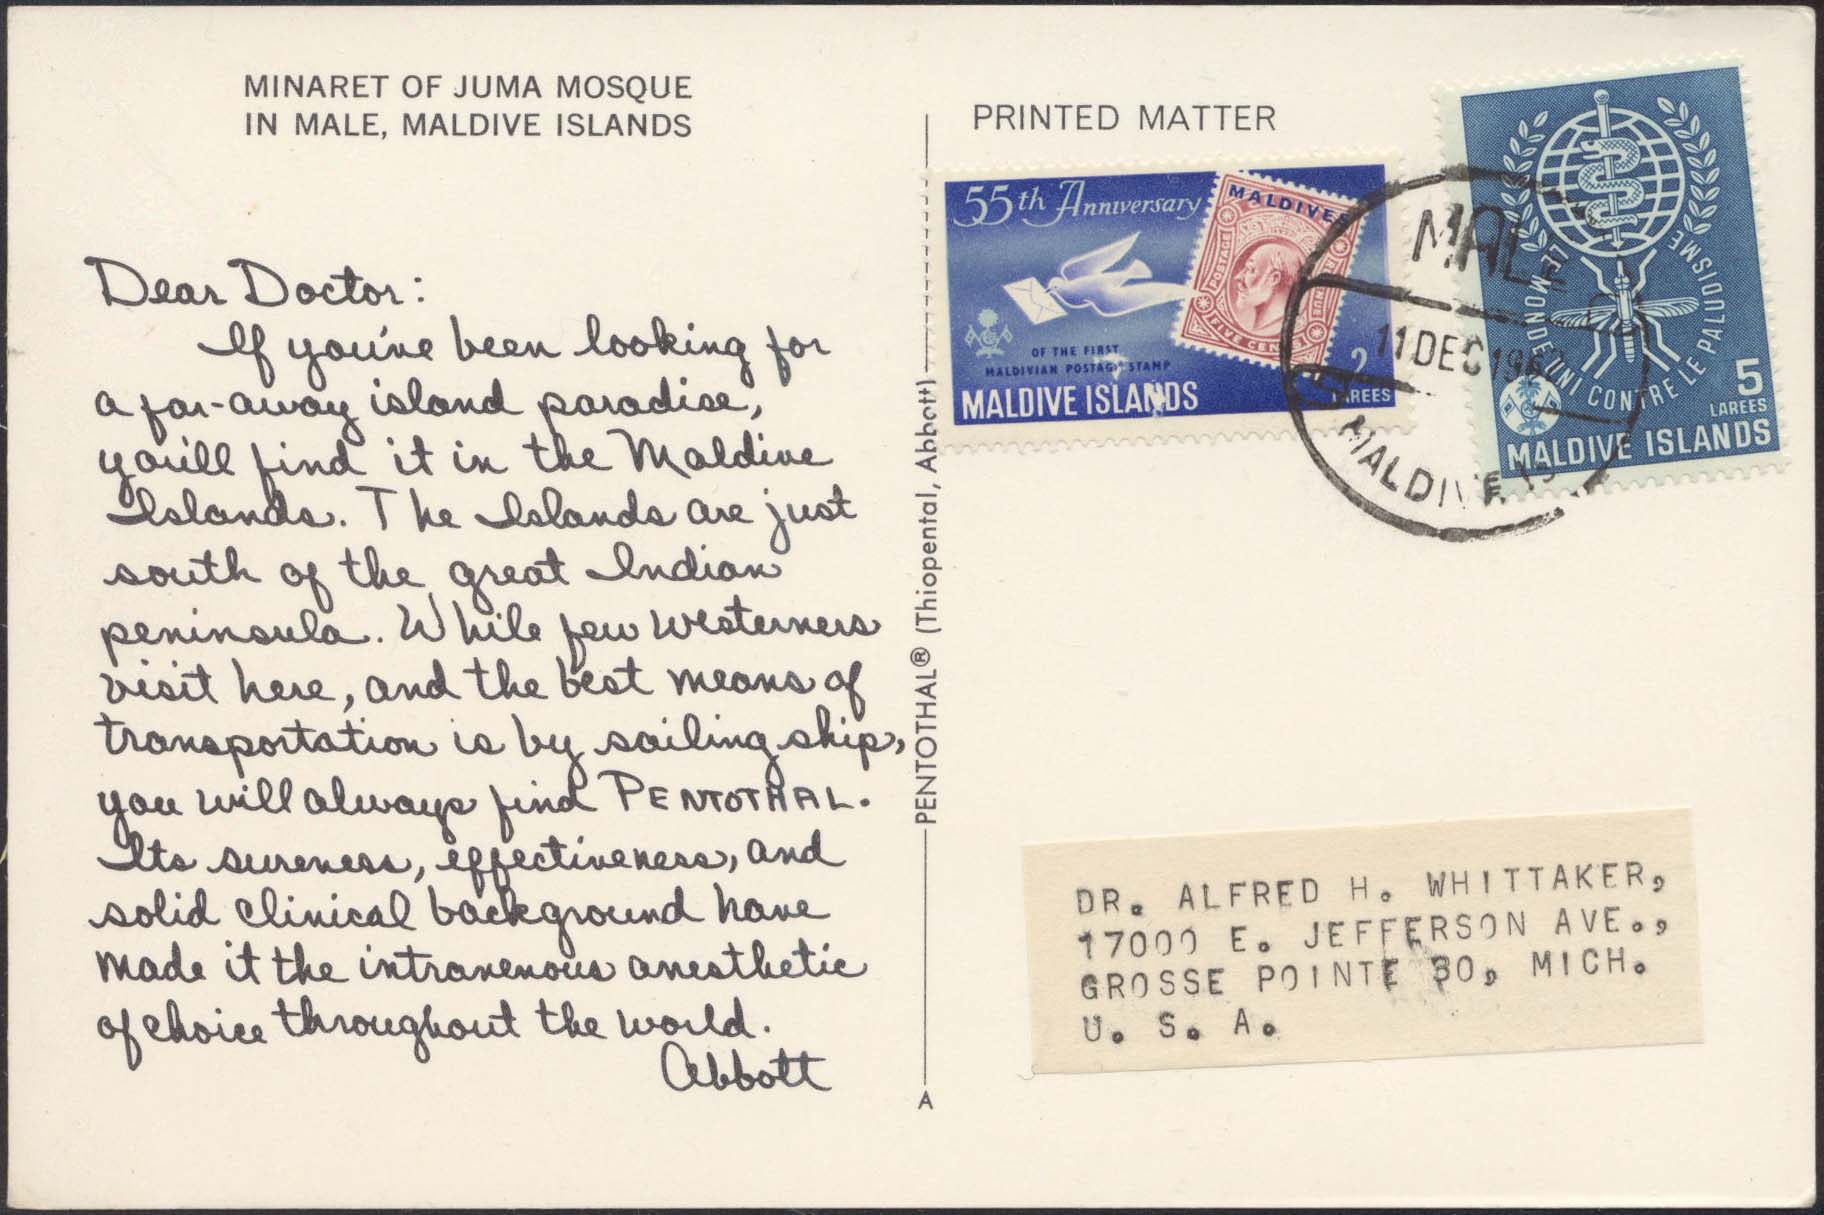 MINARET OF JUMA MOSQUE
IN MALE, MALDIVE ISLANDS
Dear Doctor:
If you've been looking for
a far-away island paradise,
you'll find it in the Maldive
Islands. The Islands are just
south of the great Indian
peninsula. While few westerners
visit here, and the best means of
transportation is by sailing ship,
you will always find PENTOTHAL.
Its sureness, effectiveness, and
solid clinical background have
made it the intravenous anesthetic
of choice throughout the world.
Abbott
PENTOTHAL® (Thiopental, Abbott)
A
PRINTED MATTER
55th Anniversary
OF THE FIRST
MALDIVIAN POSTAGE STAMP
MALDIVE ISLANDS
2
LAREES
MALDIVES
POSTAGE
FIVE CENTS
LE MONDE UNI CONTRE LE PALUDISME
5
LAREES
MALDIVE ISLANDS
MALE
11 DEC 1962
MALDIVE IS
DR. ALFRED H. WHITTAKER,
17000 E. JEFFERSON AVE.,
GROSSE POINTE 30, MICH.
U. S. A.